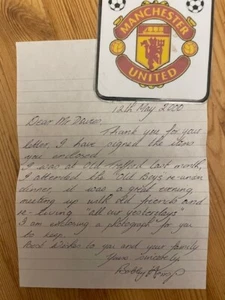 MANCHESTER
UNITED
12th May 2000
Dear Mr
Thank you for your
letter, I have signed the items
you enclosed.
I was at Old Trafford last month,
I attended the "Old Boys" re-union
dinner, it was a great evening
meeting up with old friends and
re-living "all our yesterdays"
I am enclosing a photograph for you
to keep.
Kind Wishes to you and your family
Yours Sincerely